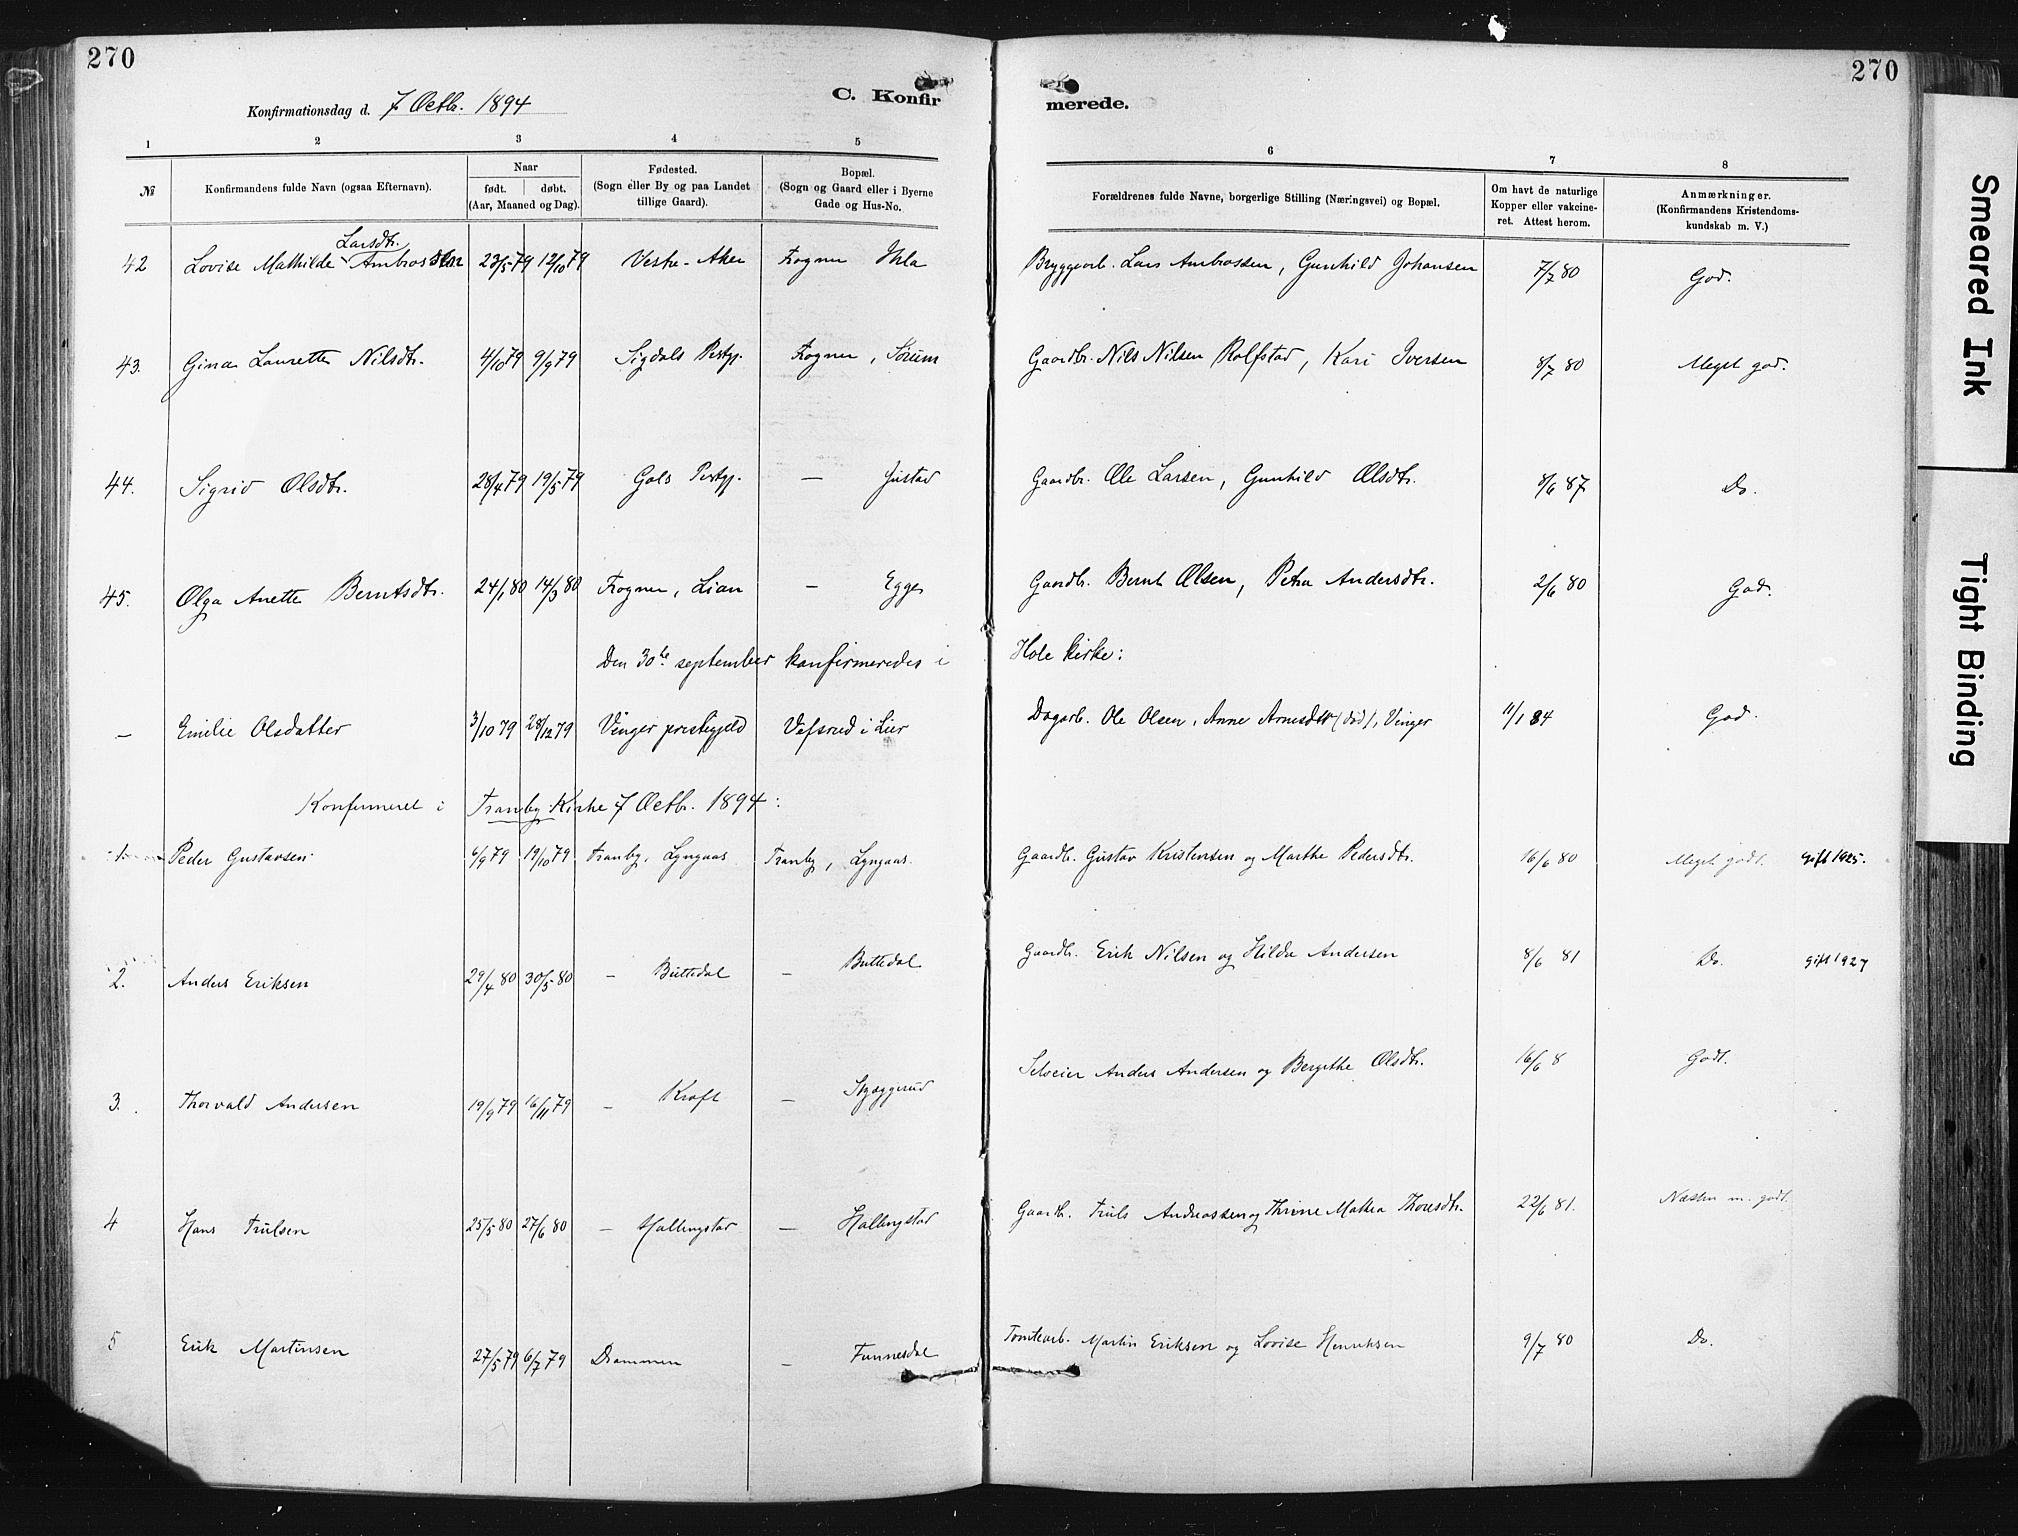 270
270
Konfirmationsdag d. 7 Octb. 1894
C. Konfir
merede.
1 2 3 4 5 6 7 8
№ Konfirmandens fulde Navn (ogsaa Efternavn). Naar født. døbt. (Aar, Maaned og Dag). Fødested. (Sogn eller By og paa Landet tillige Gaard). Bopæl. (Sogn og Gaard eller i Byerne Gade og Hus-No. Forældrenes fulde Navne, borgerlige Stilling (Næringsvei) og Bopæl. Om havt de naturlige Kopper eller vakcineret. Attest herom. Anmærkninger. (Konfirmandens Kristendomskundskab m. V.)
Larsdtr.
42 Lovise Mathilde Ambrossen 23/5 79 12/10 79 Vestre-Aker Frogner Ihla Bryggearb. Lars Ambrossen, Gunhild Johansen 7/7 80 God.
43. Gina Laurette Nilsdtr. 4/10 79 9/9 79 Sigdals Prstgj. Frogner, Sørum Gaardbr. Nils Nilsen Rolfstad, Kari Iversen 8/7 80 Meget god.
44. Sigrid Olsdtr. 28/4 79 19/5 79 Gols Prstgj. — Justad Gaardbr. Ole Larsen, Gunhild Olsdtr. 8/6 87 Do.
45. Olga Anette Berntsdtr. 24/1 80 14/3 80 Frogner, Lian — Egge Gaardbr. Bernt Olsen, Petra Andersdtr. 2/6 80 God.
Den 30te september konfirmeredes i Hole kirke:
— Emilie Olsdatter 3/10 79 28/12 79 Vinger prestegjeld Vefsrud i Lier Dagarb. Ole Olsen, Anne Arnesdtr (død), Vinger 11/1 84 God.
Konfirmeret i Tranby Kirke 7 Octbr. 1894:
1. Peder Gustavsen 6/9 79 19/10 79 Tranby, Lyngaas Tranby, Lyngaas Gaardb. Gustav Kristensen og Marthe Pedersdtr. 16/6 80 Meget godt. gift 1925.
2. Anders Eriksen 29/4 80 30/5 80 — Buttedal — Buttedal Gaardb. Erik Nilsen og Hilda Andersen 8/6 81 Do. gift 1927
3. Thorvald Andersen 19/9 79 16/11 79 — Kroft — Styggerud Selveier Anders Andersen og Bergithe Olsdtr. 16/6 8 Godt.
4 Hans Trulsen 25/5 80 27/6 80 — Hallingstad — Hallingstad Gaardb. Truls Andreassen og Thrine Mathea Thoresdtr. 22/6 81. Næsten m. godt.
5 Erik Martinsen 27/5 79 6/7 79 Drammen — Tunnesdal Tomtearb. Martin Eriksen og Lovise Henriksen 9/7 80 Do.
Smeared Ink
Tight Binding